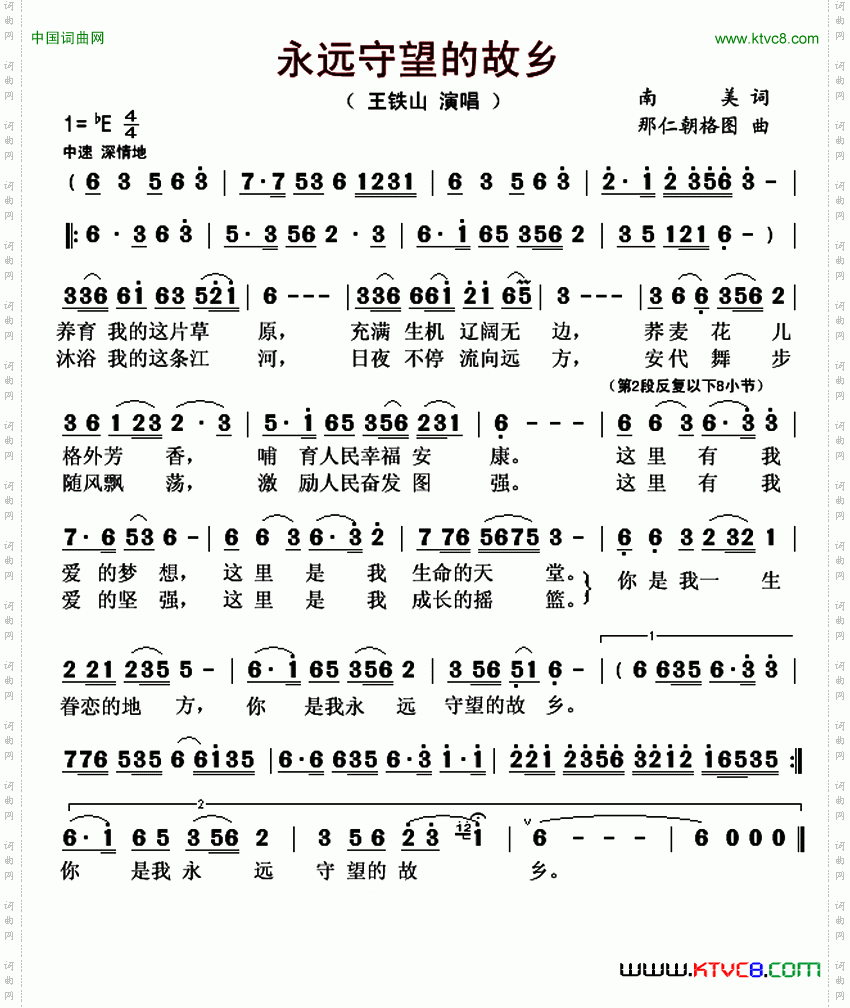 中国词曲网
www.ktvc8.com
永远守望的故乡
（ 王铁山 演唱 ）
南 美 词
那仁朝格图 曲
1= ♭E 4/4
中速 深情地
( 6 3 5 6 3 | 7· 7 53 6 1231 | 6 3 5 6 3 | 2· 1 2 356 3 - |
|: 6 · 3 6 3 | 5· 3 56 2 · 3 | 6· 1 65 356 2 | 3 5 121 6 - ) |
336 61 63 521 | 6 - - - | 336 661 21 65 | 3 - - - | 3 6 6 356 2 |
养育 我的这片草 原， 充满 生机 辽阔无 边， 荞麦 花 儿
沐浴 我的这条江 河， 日夜 不停 流向远 方， 安代 舞 步
（第2段反复以下8小节）
3 6 1 23 2 · 3 | 5· 1 65 356 231 | 6 - - - | 6 6 3 6· 3 3 |
格外芳 香， 哺 育人民幸福 安 康。 这 里 有 我
随风飘 荡， 激 励人民奋发 图 强。 这 里 有 我
7· 6 53 6 - | 6 6 3 6· 3 2 | 7 76 5675 3 - | 6 6 3 2 32 1 |
爱 的梦 想， 这 里 是 我 生命的天 堂。 你 是 我一 生
爱 的坚 强， 这 里 是 我 成长的摇 篮。
1
2 21 235 5 - | 6· 1 65 356 2 | 3 56 51 6 - | ( 6 635 6· 3 3 |
眷恋的地 方， 你 是我永 远 守望的故 乡。
776 535 6 6135 | 6· 6 635 6· 3 1· 1 | 221 2356 3212 16535 :|
2
6· 1 65 3 56 2 | 3 5 6 2 3 12 1 | 6 - - - | 6 0 0 0 ||
你 是我 永 远 守 望的 故 乡。
www.KTVC8.com